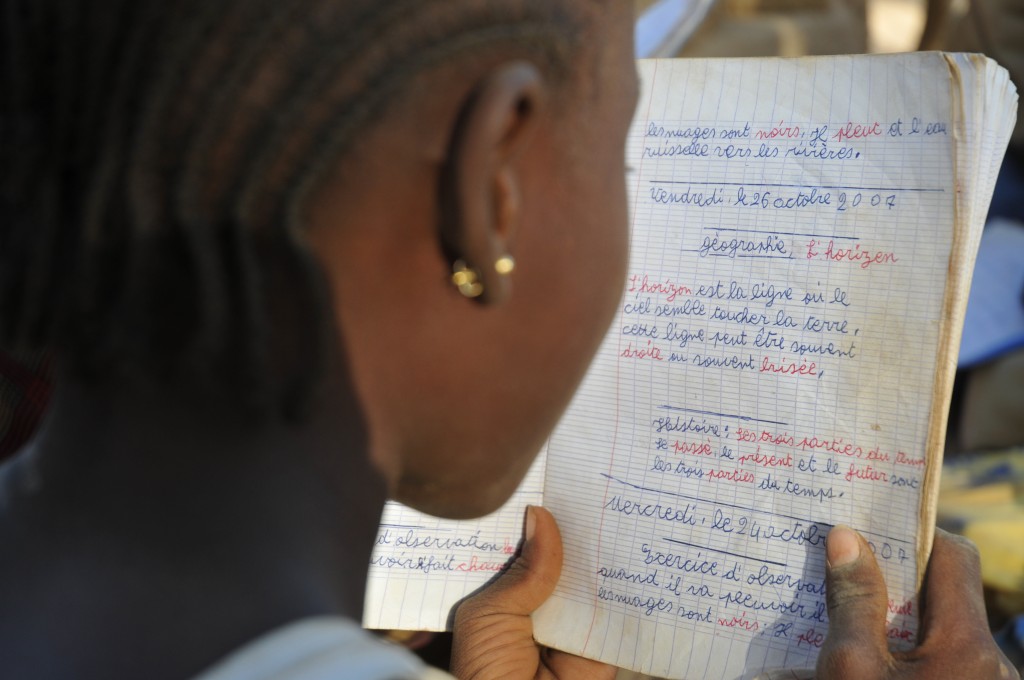 les nuages sont noirs, Il pleut et l'eau
ruisselle vers les rivières.
Vendredi, le 26 octobre 2007
géographie: L'horizen
L'horizon est la ligne où le
ciel semble toucher la terre.
cette ligne peut être souvent
droite ou souvent brisée.
Histoire: Les trois parties du tem
Le passé, le présent et le futur sont
les trois parties du temps.
Mercredi, le 24 octobr 007
Exercice d'observa
quand il va pleuvoir il
les nuages sont noirs. Il ple
d'observation
voir fait chau